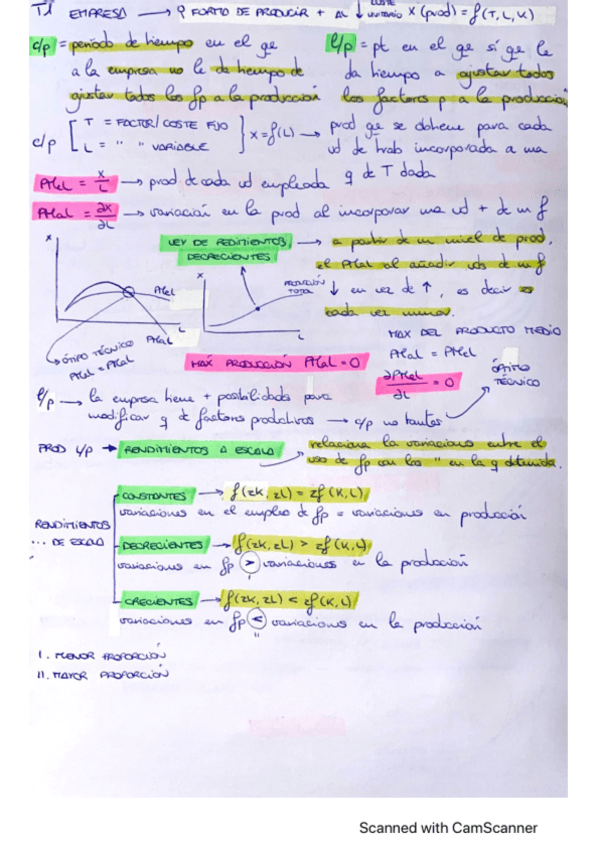 T1 EMPRESA → q FORMA DE PRODUCIR + AL ↓ COSTE unitario X (prod) = f(T, L, K)
c/p = período de tiempo en el qe
a la empresa no le da tiempo de
ajustar todos los fp a la producción
l/p = pt en el qe sí qe le
da tiempo a ajustar todos
los factores p a la producción
c/p [ T = FACTOR/COSTE FIJO
L = " " VARIABLE } X = f(L) → prod qe se obtiene para cada
ud de trab incorporada a una
q de T dada
PMeL = X/L → prod de cada ud empleada
PMaL = ∂X/∂L → variación en la prod al incorporar una ud + de un f
LEY DE REDIMIENTOS
DECRECIENTES → a partir de un nivel de prod,
el PMaL al añadir uds de un f
↓ en vez de ↑, es decir es
cada vez menor.
X
PMeL
PMaL
L
ÓPTIMO TÉCNICO
PMeL = PMaL
X
PRODUCCIÓN
TOTAL
L
MÁX PRODUCCIÓN PMaL = 0
MAX DEL PRODUCTO MEDIO
PMaL = PMeL
∂PMeL/∂L = 0
ÓPTIMO
TÉCNICO
l/p → la empresa tiene + posibilidades para
modificar q de factores productivos → c/p no tantas
PROD l/p → RENDIMIENTOS A ESCALA
relaciona la variaciones entre el
uso de fp con las " en la q obtenida.
RENDIMIENTOS
... DE ESCALA
CONSTANTES → f(zK, zL) = zf(K, L)
variaciones en el empleo de fp = variaciones en producción
DECRECIENTES → f(zK, zL) > zf(K, L)
variaciones en fp > variaciones en la producción
CRECIENTES → f(zK, zL) < zf(K, L)
variaciones en fp < variaciones en la producción
II
I. MENOR PROPORCIÓN
II. MAYOR PROPORCIÓN
Scanned with CamScanner